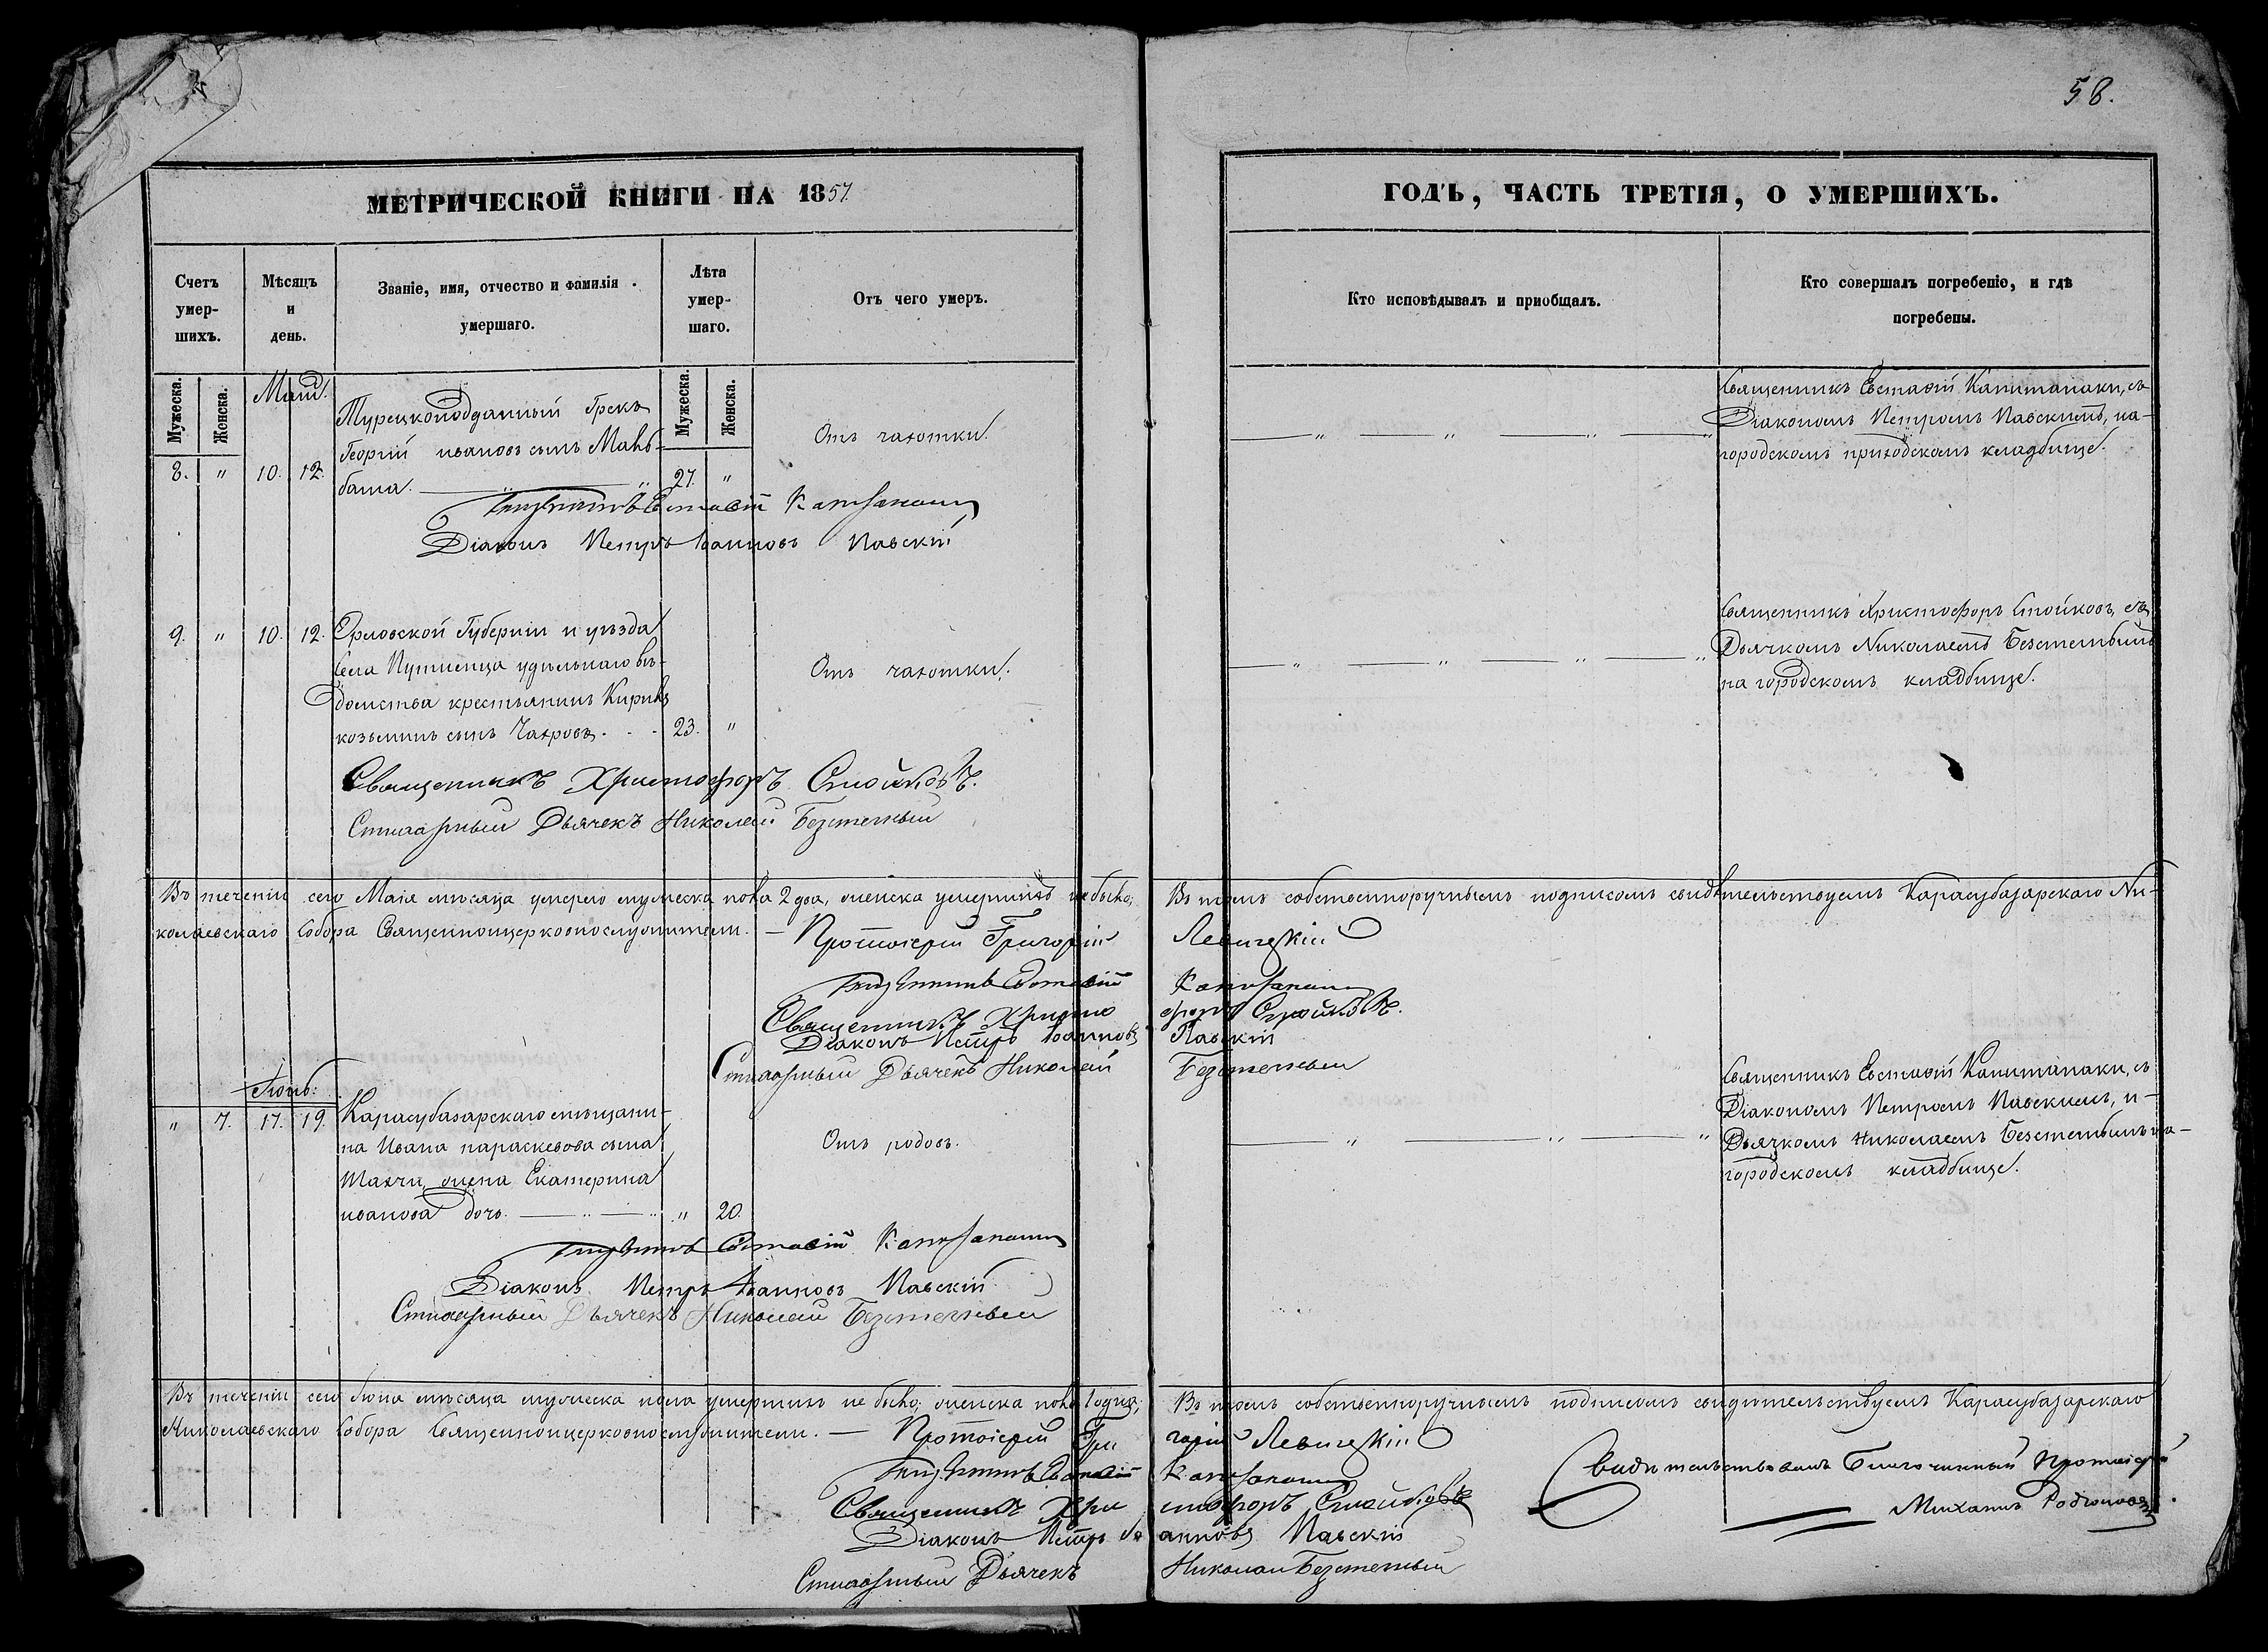 58.
МЕТРИЧЕСКОЙ КНИГИ НА 1857.
Счетъ умер-шихъ.
Мѣсяцъ и день.
Званіе, имя, отчество и фамилія умершаго.
Лѣта умер-шаго.
Отъ чего умеръ.
Мужеска.
Женска.
Мужеска.
Женска.
Маій.
Турецкоподданный Грекъ
Георгій ивановъ сынъ
8. " 10. 12. баша. 27. "
Отъ чахотки.
Евстафій
Діаконъ Петръ Іоанновъ Павскій
9. " 10. 12. Орловской Губерніи и уѣзда
села удѣльнаго вѣ-
домства крестьянинъ
козьминъ сынъ 23. "
Отъ чахотки.
Священникъ Христофоръ Стойковъ.
Стихарный Дьячекъ Николай
Въ теченіи сего Маія мѣсяца умерло мужеска пола 2 два, женска умершихъ не было;
колаевскаго Собора Священноцерковнослужители. —
Протоіерей Григорій
Евстафій
Священникъ Христо
Діаконъ Петръ Іоанновъ
Стихарный Дьячекъ Николай
Іюнь:
" 7. 17. 19. Карасубазарскаго мѣщани-
на Ивана параскевова сына
жена Екатерина
иванова дочь. " 20.
Отъ родовъ.
Евстафій
Діаконъ Петръ Іоанновъ Павскій
Стихарный Дьячекъ Николай
Въ теченіи сего Іюня мѣсяца мужеска пола умершихъ не было; женска пола 1 одна;
Николаевскаго Собора Священноцерковнослужители. — Протоіерей Гри
Евстафій
Священникъ Хри
Діаконъ Петръ Іо
Стихарный Дьячекъ
ГОДЪ, ЧАСТЬ ТРЕТІЯ, О УМЕРШИХЪ.
Кто исповѣдывалъ и пріобщалъ.
Кто совершалъ погребеніе, и гдѣ погребены.
Священникъ Евстафій Капитанаки, съ
Діакономъ Петромъ Павскимъ, на
городскомъ приходскомъ кладбищѣ.
Священникъ Христофоръ Стойковъ, съ
Дьячкомъ Николаемъ
на городскомъ кладбищѣ.
Въ томъ собственноручнымъ подписомъ свидѣтельствуемъ Карасубазарскаго Ни-
Левицкій
форъ Стойковъ.
Павскій
Священникъ Евстафій Капитанаки, съ
Діакономъ Петромъ Павскимъ, и
Дьячкомъ Николаемъ на
городскомъ кладбищѣ.
Въ томъ собственноручнымъ подписомъ свидѣтельствуемъ Карасубазарскаго
горій Левицкій
стофоръ Стойковъ
анновъ Павскій
Николай
Свидѣтельствовалъ Благочинный Протоіерей
Михаилъ Родіоновъ.